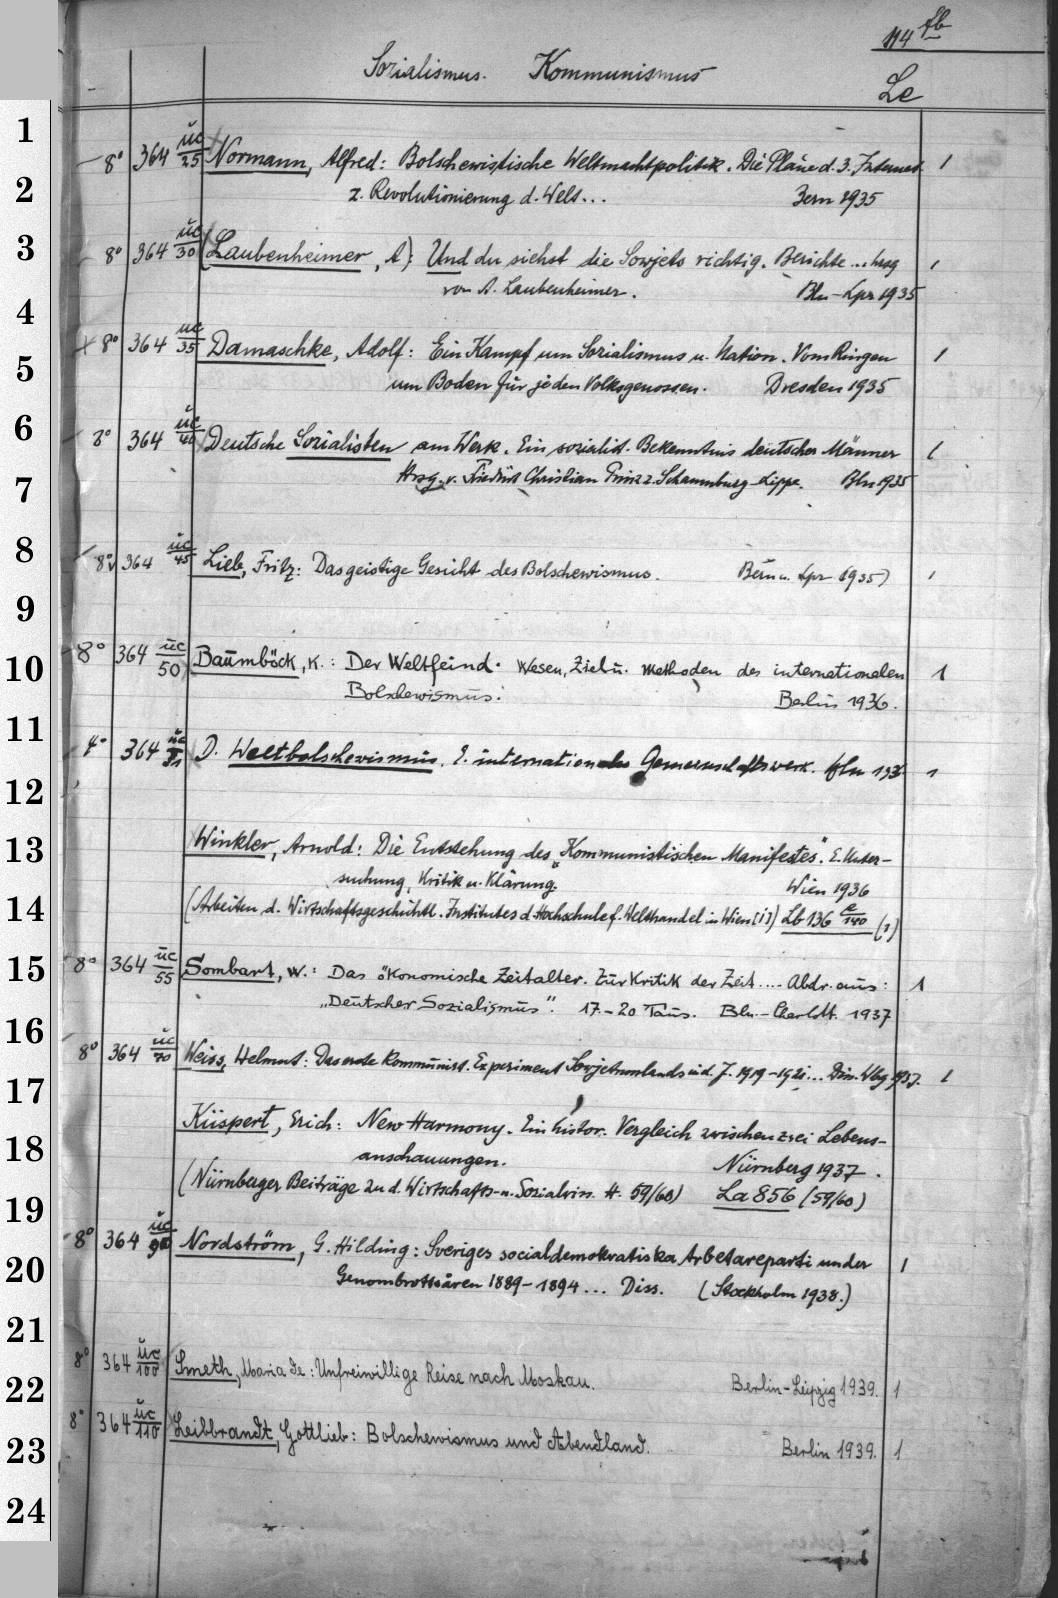 114 fb
Sozialismus. Kommunismus Le
8° 364 üc/25 Normann, Alfred: Bolschewistische Weltmachtpolitik. Die Pläne d. 3. Internat. 1
z. Revolutionierung d. Welt... Bern 1935
8° 364 üc/30 (Laubenheimer, A): Und du siehst die Sowjets richtig. Berichte ... hrsg 1
von A. Laubenheimer. Bln-Lpz 1935
8° 364 üc/35 Damaschke, Adolf: Ein Kampf um Sozialismus u. Nation. Vom Ringen 1
um Boden für jeden Volksgenossen. Dresden 1935
8° 364 üc/40 Deutsche Sozialisten am Werk. Ein sozialist. Bekenntnis deutscher Männer 1
Hrsg. v. Friedrich Christian Prinz z. Schaumburg-Lippe. Bln 1935
8° 364 üc/45 Lieb, Fritz: Das geistige Gesicht des Bolschewismus. Bern u. Lpz (1935) 1
8° 364 üc/50 Baumböck, K.: Der Weltfeind. Wesen, Ziel u. Methoden des internationalen 1
Bolschewismus. Berlin 1936.
4° 364 üc/51 D. Weltbolschewismus. E. internationales Gemeinschaftswerk. Bln 193 1
Winkler, Arnold: Die Entstehung des "Kommunistischen Manifestes". E. Unter-
suchung, Kritik u. Klärung. Wien 1936
(Arbeiten d. Wirtschaftsgeschichtl. Institutes d Hochschule f. Welthandel in Wien [1]) Lb 136 e/140 (1)
8° 364 üc/55 Sombart, W.: Das ökonomische Zeitalter. Zur Kritik der Zeit .... Abdr. aus: 1
„Deutscher Sozialismus". 17.-20 Taus. Bln.-Charlott. 1937
8° 364 üc/70 Weiss, Helmut: Das erste kommunist. Experiment Sowjetrusslands in d. J. 1919-1921... Diss. Wbg 1937. 1
Küspert, Erich: New Harmony. Ein histor. Vergleich zwischen zwei Lebens-
anschauungen. Nürnberg 1937.
(Nürnberger Beiträge zu d. Wirtschafts- u. Sozialwiss. H. 59/60) La 856 (59/60)
8° 364 üc/90 Nordström, G. Hilding: Sveriges socialdemokratiska Arbetareparti under 1
Genombrottsåren 1889-1894... Diss. (Stockholm 1938.)
8° 364 üc/100 Smeth, Maria de: Unfreiwillige Reise nach Moskau. Berlin-Leipzig 1939. 1
8° 364 üc/110 Leibbrandt, Gottlieb: Bolschewismus und Abendland. Berlin 1939. 1
1
2
3
4
5
6
7
8
9
10
11
12
13
14
15
16
17
18
19
20
21
22
23
24